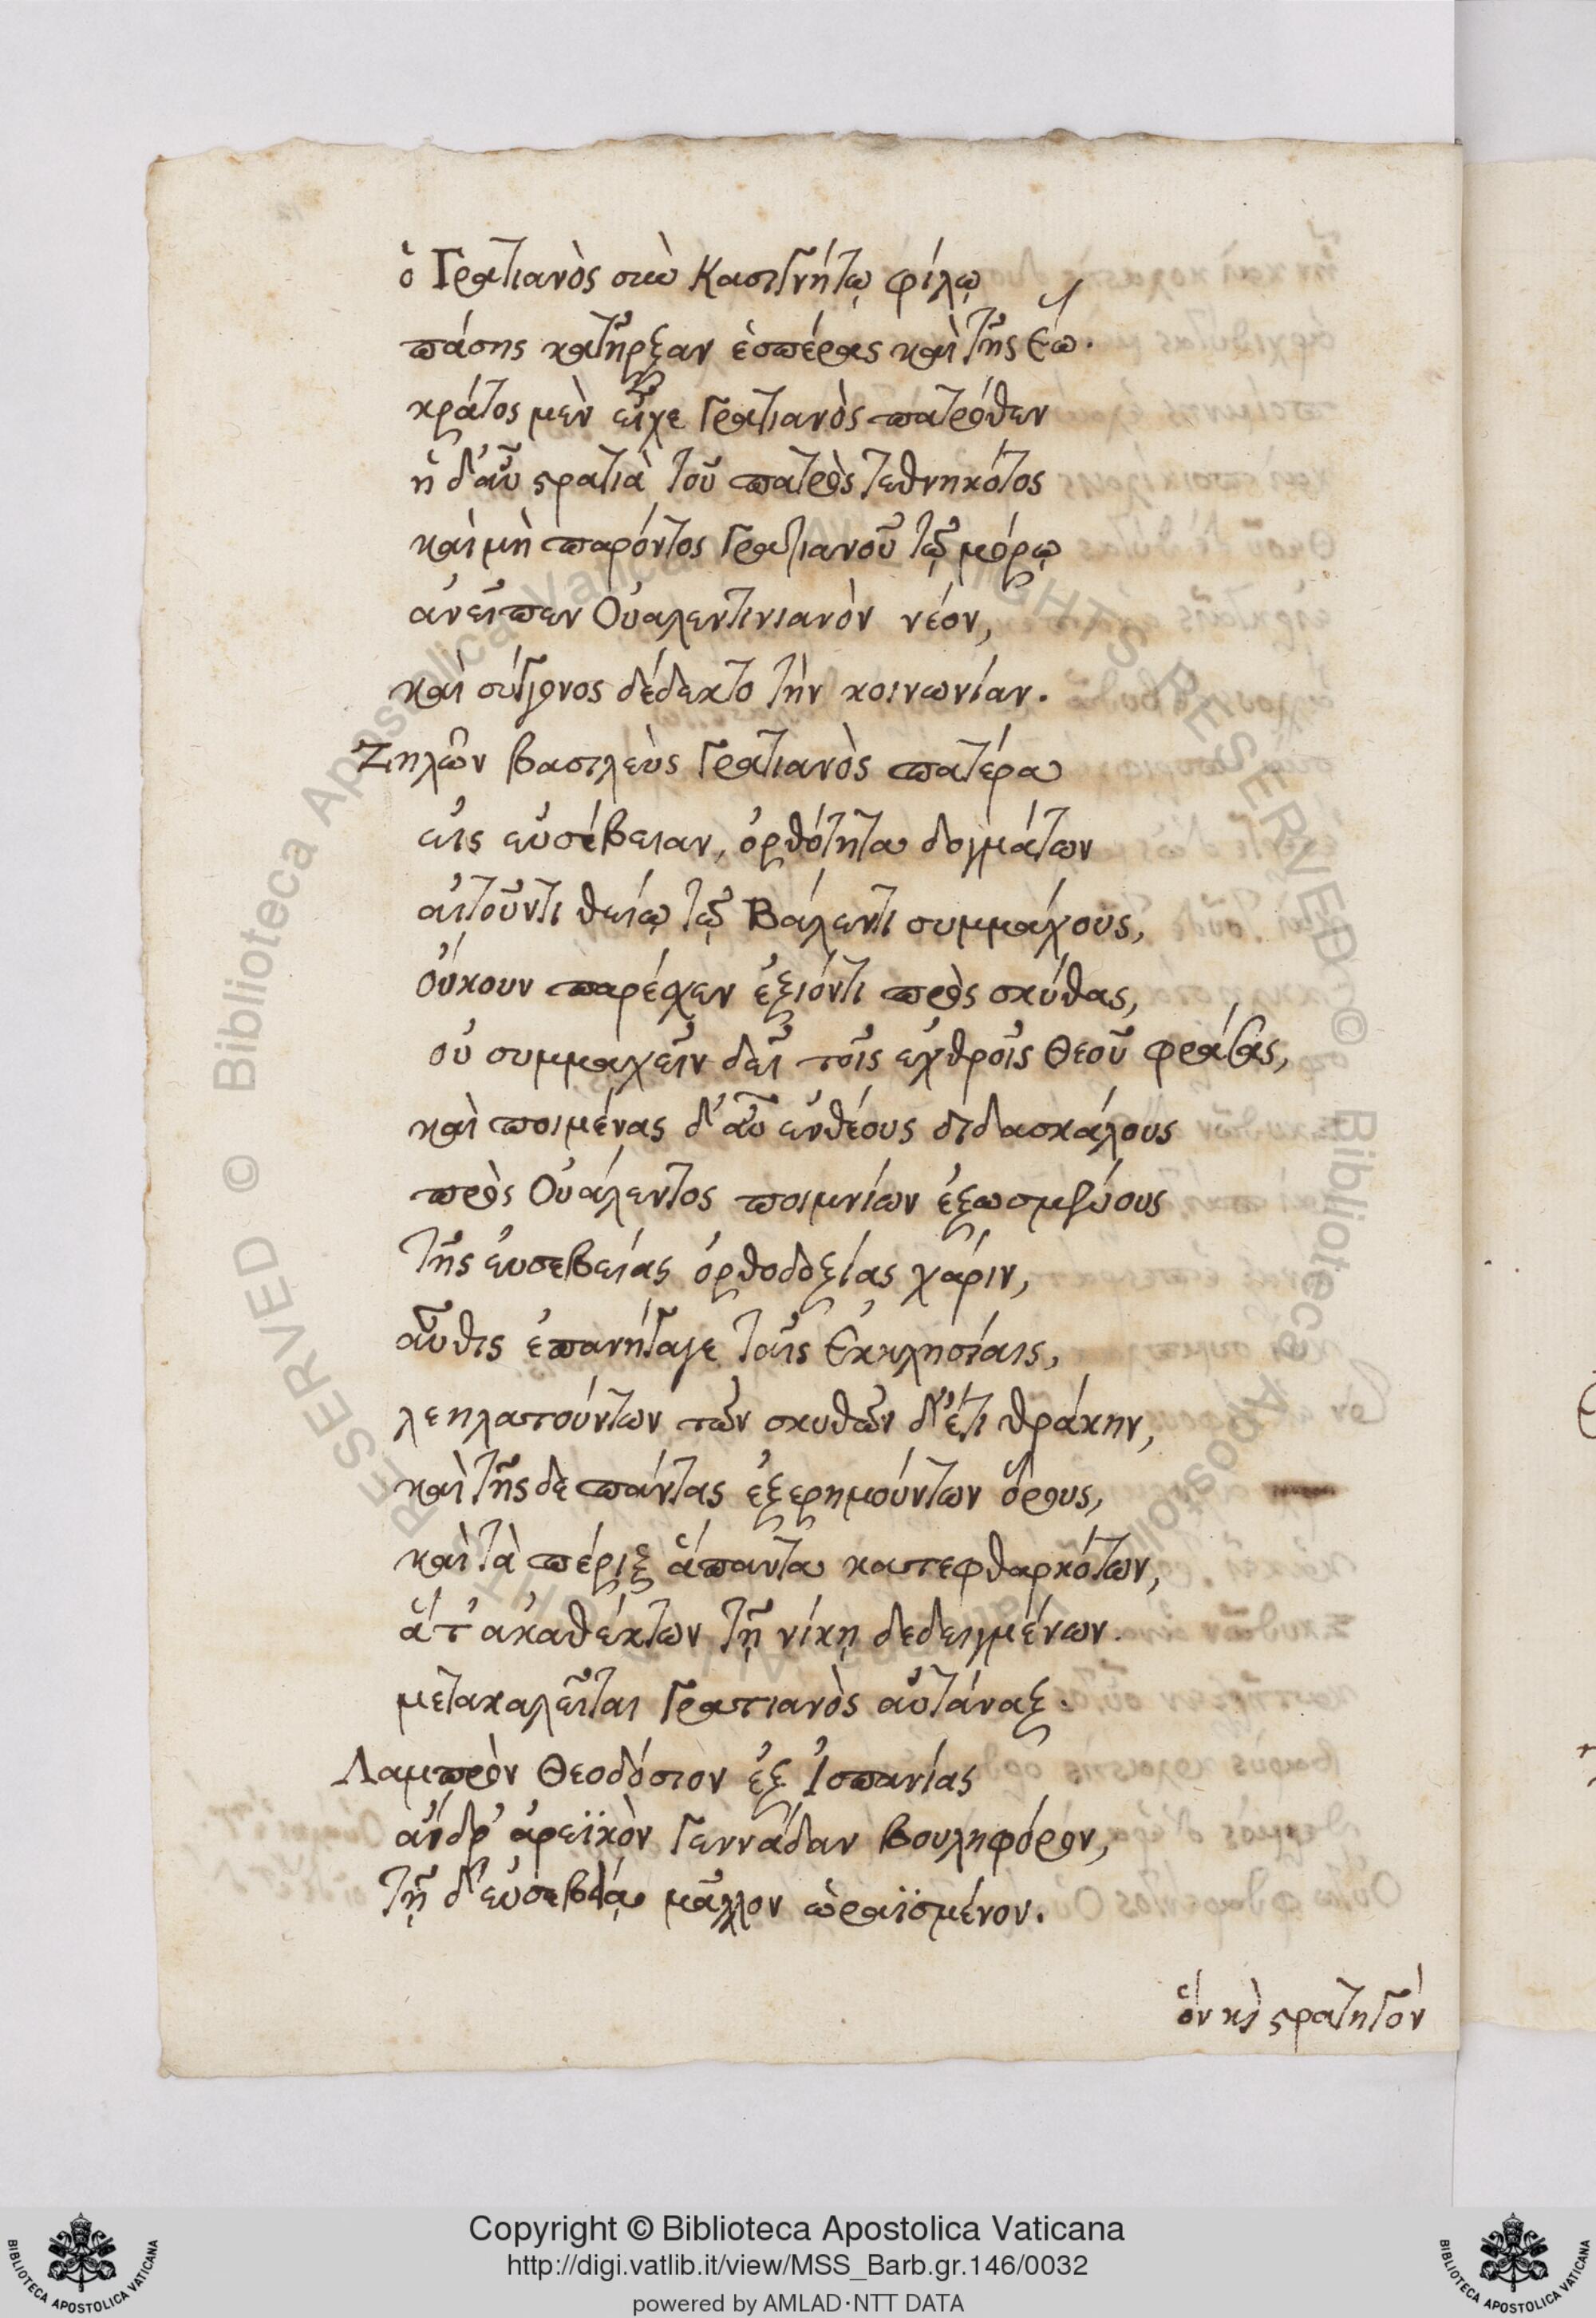 ὁ Γρατιανὸς σὺν κασιγνήτῳ φίλῳ
πάσης κατῆρξαν ἑσπέρας καὶ τῆς ἕω.
κράτος μὲν εἶχε Γρατιανὸς πατρόθεν
ἡ δ' αὖ στρατιὰ τοῦ πατρὸς τεθνηκότος
καὶ μὴ παρόντος Γρατιανοῦ τῷ μόρῳ
ἀνεῖπεν Οὐαλεντινιανὸν νέον,
καὶ σύγγονος δέδεκτο τὴν κοινωνίαν.
Ζηλῶν βασιλεὺς Γρατιανὸς πατέρα
εἰς εὐσέβειαν, ὀρθότητα δογμάτων
αἰτοῦντι θείῳ τῷ Βάλεντι συμμάχους,
οὔκουν παρέσχεν ἐξιόντι πρὸς σκύθας,
οὐ συμμαχεῖν δεῖ τοῖς ἐχθροῖς Θεοῦ φράσας,
καὶ ποιμένας δ' αὖ ἐνθέους διδασκάλους
πρὸς Οὐάλεντος ποιμνίων ἐξωσμένους
τῆς εὐσεβείας ὀρθοδοξίας χάριν,
αὖθις ἐπανήγαγε ταῖς Ἐκκλησίαις,
λεηλατούντων τῶν σκυθῶν δ' ἔτι θράκην,
καὶ τῆςδε πάντας ἐξερημούντων ὅρους,
καὶ τὰ πέριξ ἅπαντα κατεφθαρκότων,
ἅτ' ἀκαθέκτων τῇ νίκῃ δεδειγμένων.
μετακαλεῖται Γρατιανὸς αὐτάναξ.
Λαμπρὸν Θεοδόσιον ἐξ Ἱσπανίας
ἄνδρ' ἀρεϊκὸν γεννάδαν βουληφόρον,
τῇ δ' εὐσεβείᾳ μᾶλλον ὡραϊσμένον.
ὃν κὶ στρατηγὸν
Copyright © Biblioteca Apostolica Vaticana
http://digi.vatlib.it/view/MSS_Barb.gr.146/0032
powered by AMLAD·NTT DATA